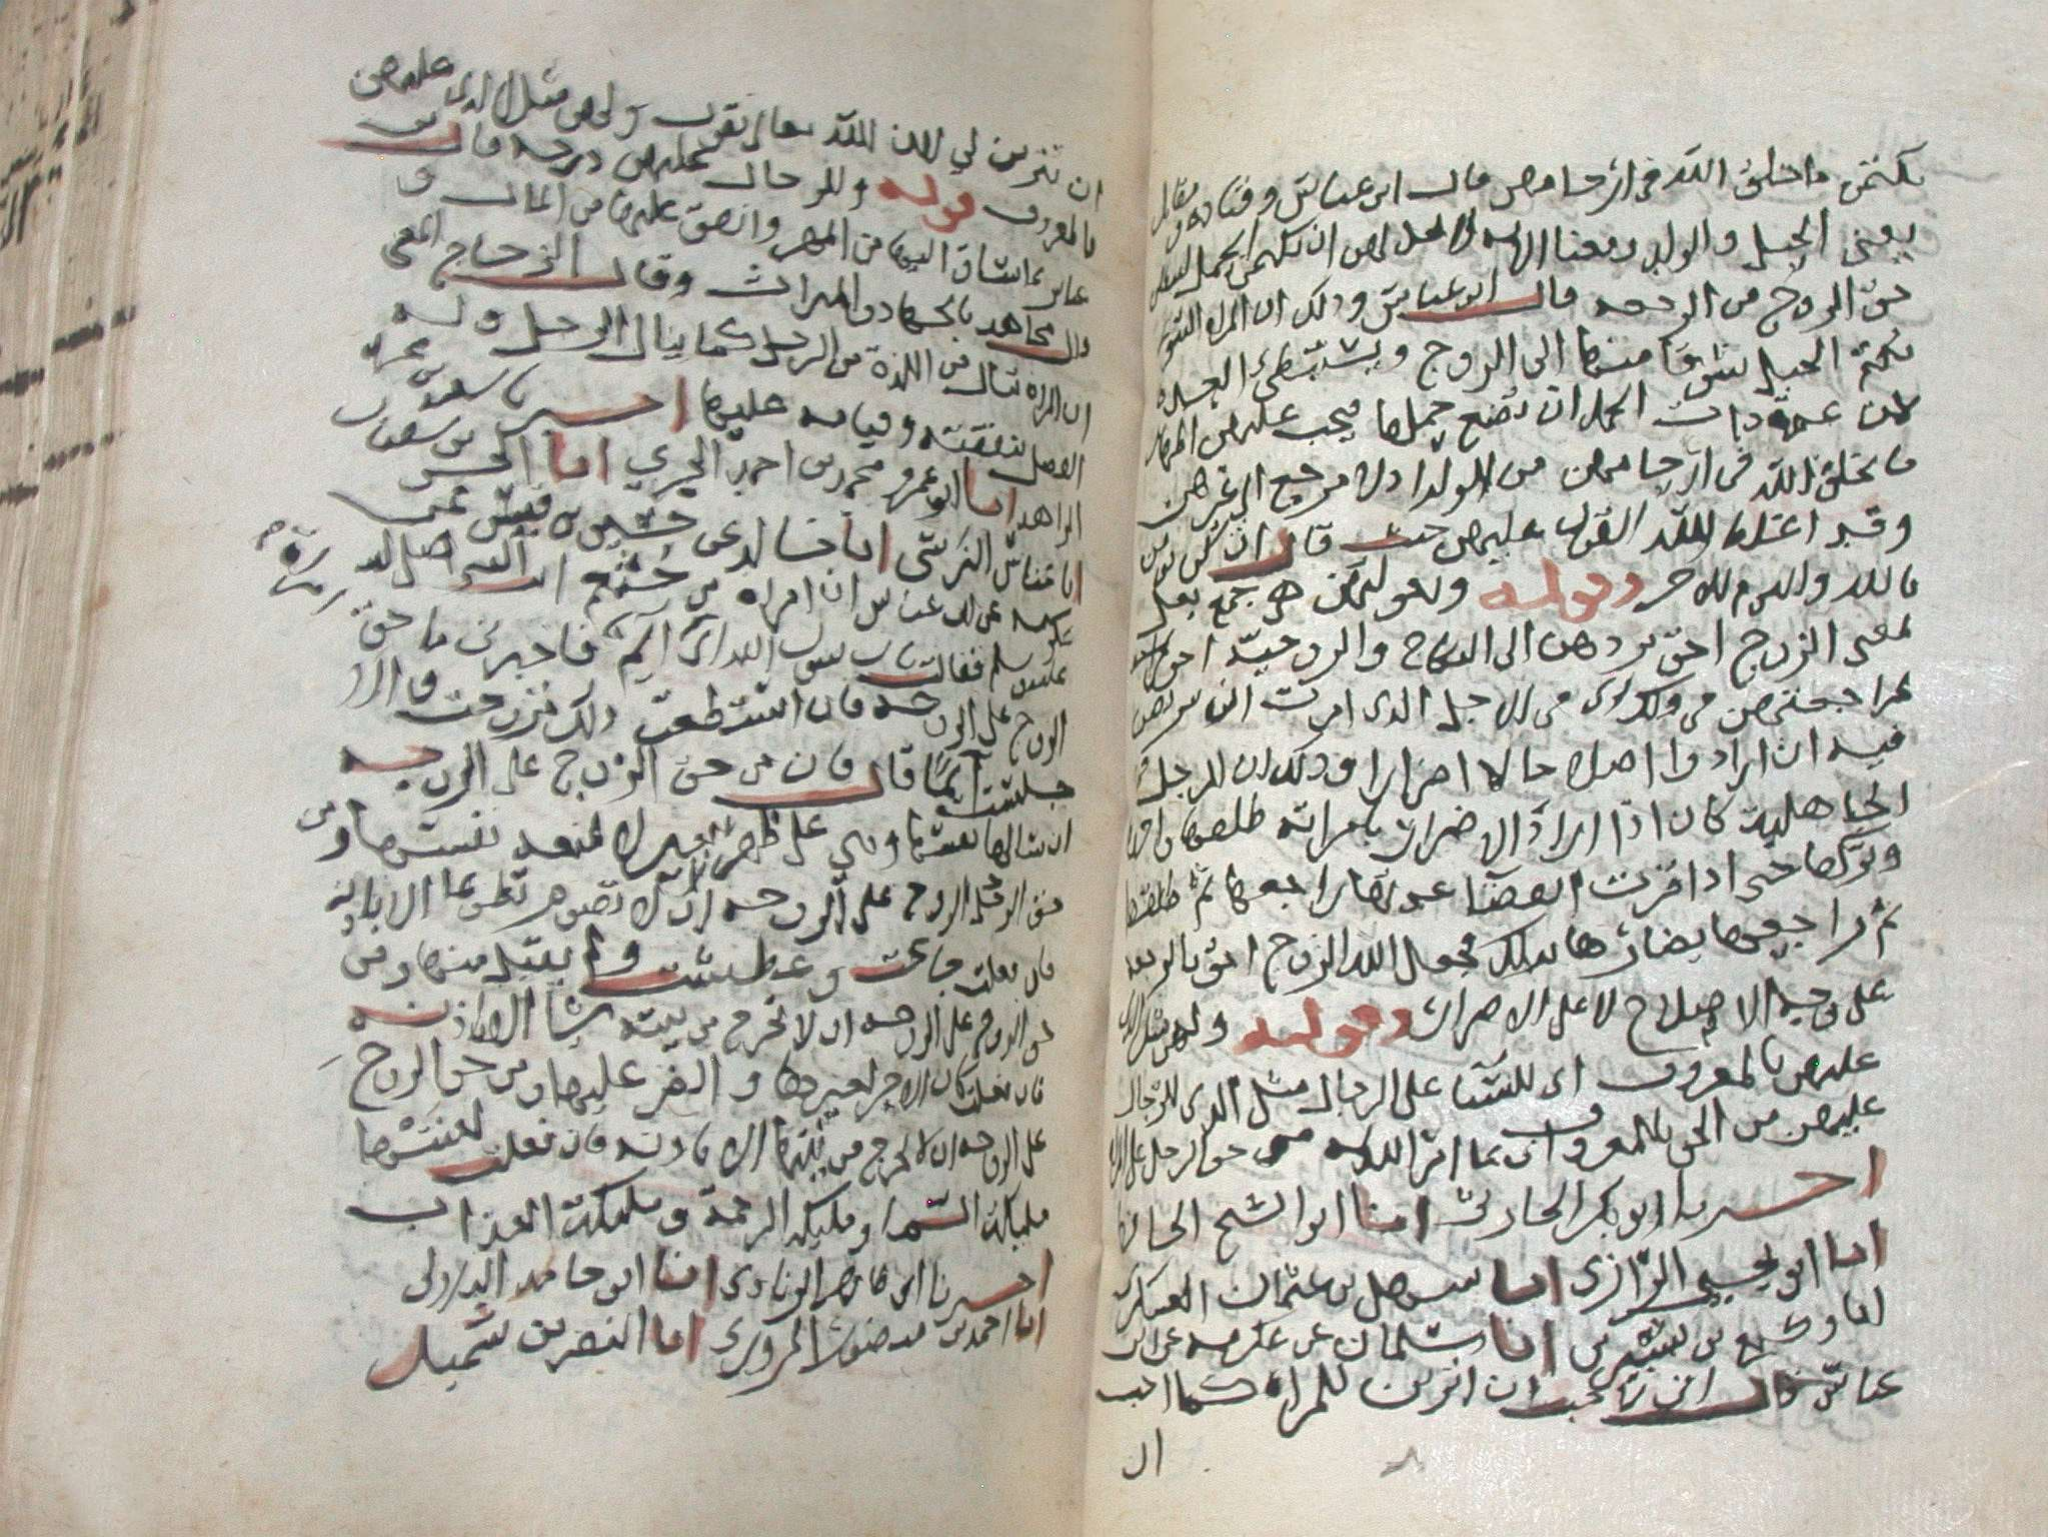 يكتمن ما خلق الله في ارحامهن قال ابن عباس وقتاده ومقاتل
يعني الحبل والولد ومعنا الايه لا يحل لهن ان يكتمن الحمل
حق الزوج من الرجعه قال ابن عباس وذلك ان المراه
تكتم الحبل شوقا منها الى الزوج ويستبطئ العده
لان عدة ذات الحمل ان تضع حملها فيجب عليهن اظهار
ما يخلق الله في ارحامهن من الولد اذ لا مرجع الى غيرهن
وقد اغلظ الله القول عليهن حيث قال ان كن يومن
بالله واليوم الاخر وقوله وبعولتهن هي جمع بعل
يعني الزوج احق بردهن الى النكاح والزوجية احق
بمراجعتهن في ذلك اي في الاجل الذي امرت ان يتربصن
فيه ان ارادوا اصلاحا لا اضرارا وذلك ان الرجل في
الجاهلية كان اذا اراد الاضرار بامراته طلقها واحدة
وتركها حتى اذا قربت انقضا عدتها راجعها ثم طلقها
ثم راجعها يضارها بذلك فجعل الله الزوج احق بالرجعه
على وجه الاصلاح لا على الاضرار وقوله ولهن مثل الذي
عليهن بالمعروف اي للنسا على الرجال مثل الذي للرجال
عليهن من الحق بالمعروف اي بما امر الله به من حق الرجل على المراه
اخبرنا ابو بكر الحارثي انبا ابو الشيخ الحافظ
انا ابو يحيى الرازي انا سهل بن عثمان العسكري
انا وكيع بن بشير بن سلمان عن عكرمه عن ابن
عباس قال اني لاحب ان اتزين للمراه كما احب
ان
ان تتزين لي لان الله تعالى يقول ولهن مثل الذي عليهن
بالمعروف قوله وللرجال عليهن درجه قال ابن
عباس بما ساق اليها من المهر وانفق عليها من المال و
قال مجاهد بالجهاد والميراث وقال الزجاج المعنى
ان المراه تنال من اللذة من الرجل كما ينال الرجل وله
الفضل بنفقته وقيامه عليها اخبرنا سعيد بن محمد
الزاهد انا ابو عمرو محمد بن احمد الحيري انا الحسن بن سفيان
انا عباس النرسي انا خالد عن حسين بن قيس عن
عكرمه عن ابن عباس ان امراه من خثعم اتت النبي صلى الله
عليه وسلم فقالت يا رسول الله اني امراة ايم فاخبرني ما حق
الزوج على الزوجه فان استطعت ذلك تزوجت والا
جلست ايما قال فان من حق الزوج على الزوجه
ان سالها نفسها وهي على ظهر بعير لا تمنعه نفسها ومن
حق الزوج على الزوجه ان لا تصوم تطوعا الا باذنه
فان فعلت جاعت وعطشت ولم يقبل منها ومن
حق الزوج على الزوجه ان لا تخرج من بيته شيا الا باذنه
فان فعلت كان الاجر لغيرها والوزر عليها ومن حق الزوج
على الزوجه ان لا تخرج من بيتها الا باذنه فان فعلت لعنتها
مليكة السما ومليكة الرحمة ومليكة العذاب
اخبرنا ابو طاهر الزيادي انا ابو حامد البلالي
انا احمد بن منصور المروزي انا النضر بن شميل